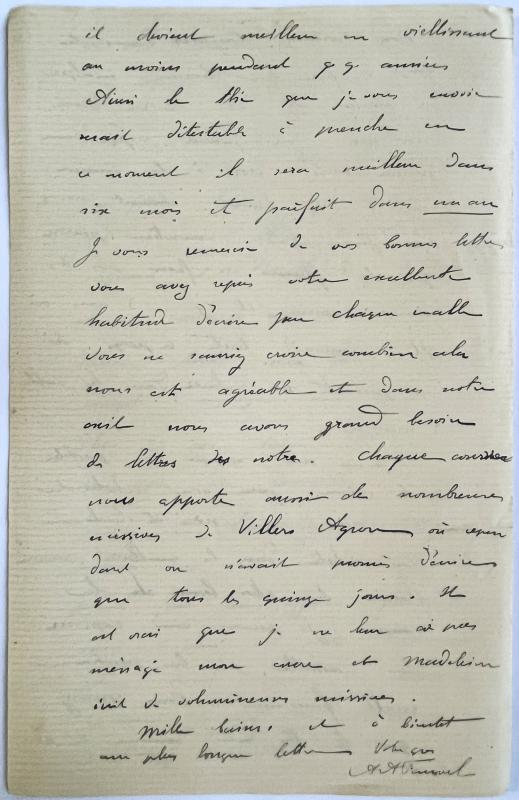 il devient meilleur en viellissant
au moins pendant qq années
Ainsi le thé que je vous envoie
serait détestable à prendre en
ce moment il sera meilleur dans
six mois et parfait dans un an
Je vous remercie de vos bonnes lettres
vous avez repris votre excellente
habitude d'écrire par chaque malle
Vous ne sauriez croire combien cela
nous est agréable et dans notre
exil nous avons grand besoin
de lettres des notres. Chaque courrier
nous apporte aussi de nombreuses
missives de Villers Agron où cepen
dant on n'avait promis d'écrire
que tous les quinze jours. Il
est vrai que je ne leur ai pas
ménagé mon encre et Madeleine
écrit de volumineuses missives.
Mille baisers et à bientôt
une plus longue lettre Votre gros